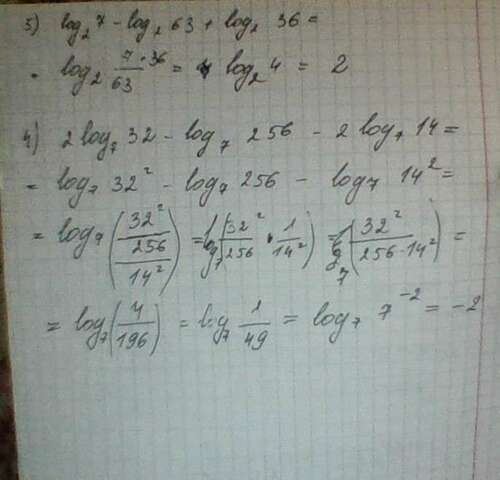 3) log₂ 7 - log₂ 63 + log₂ 36 =
= log₂ 7·36/63 = log₂ 4 = 2
4) 2 log₇ 32 - log₇ 256 - 2 log₇ 14 =
= log₇ 32² - log₇ 256 - log₇ 14² =
= log₇ (32²/256/14²) = log₇ (32²/256 · 1/14²) = log₇ (32²/256·14²) =
= log₇ (4/196) = log₇ 1/49 = log₇ 7⁻² = -2